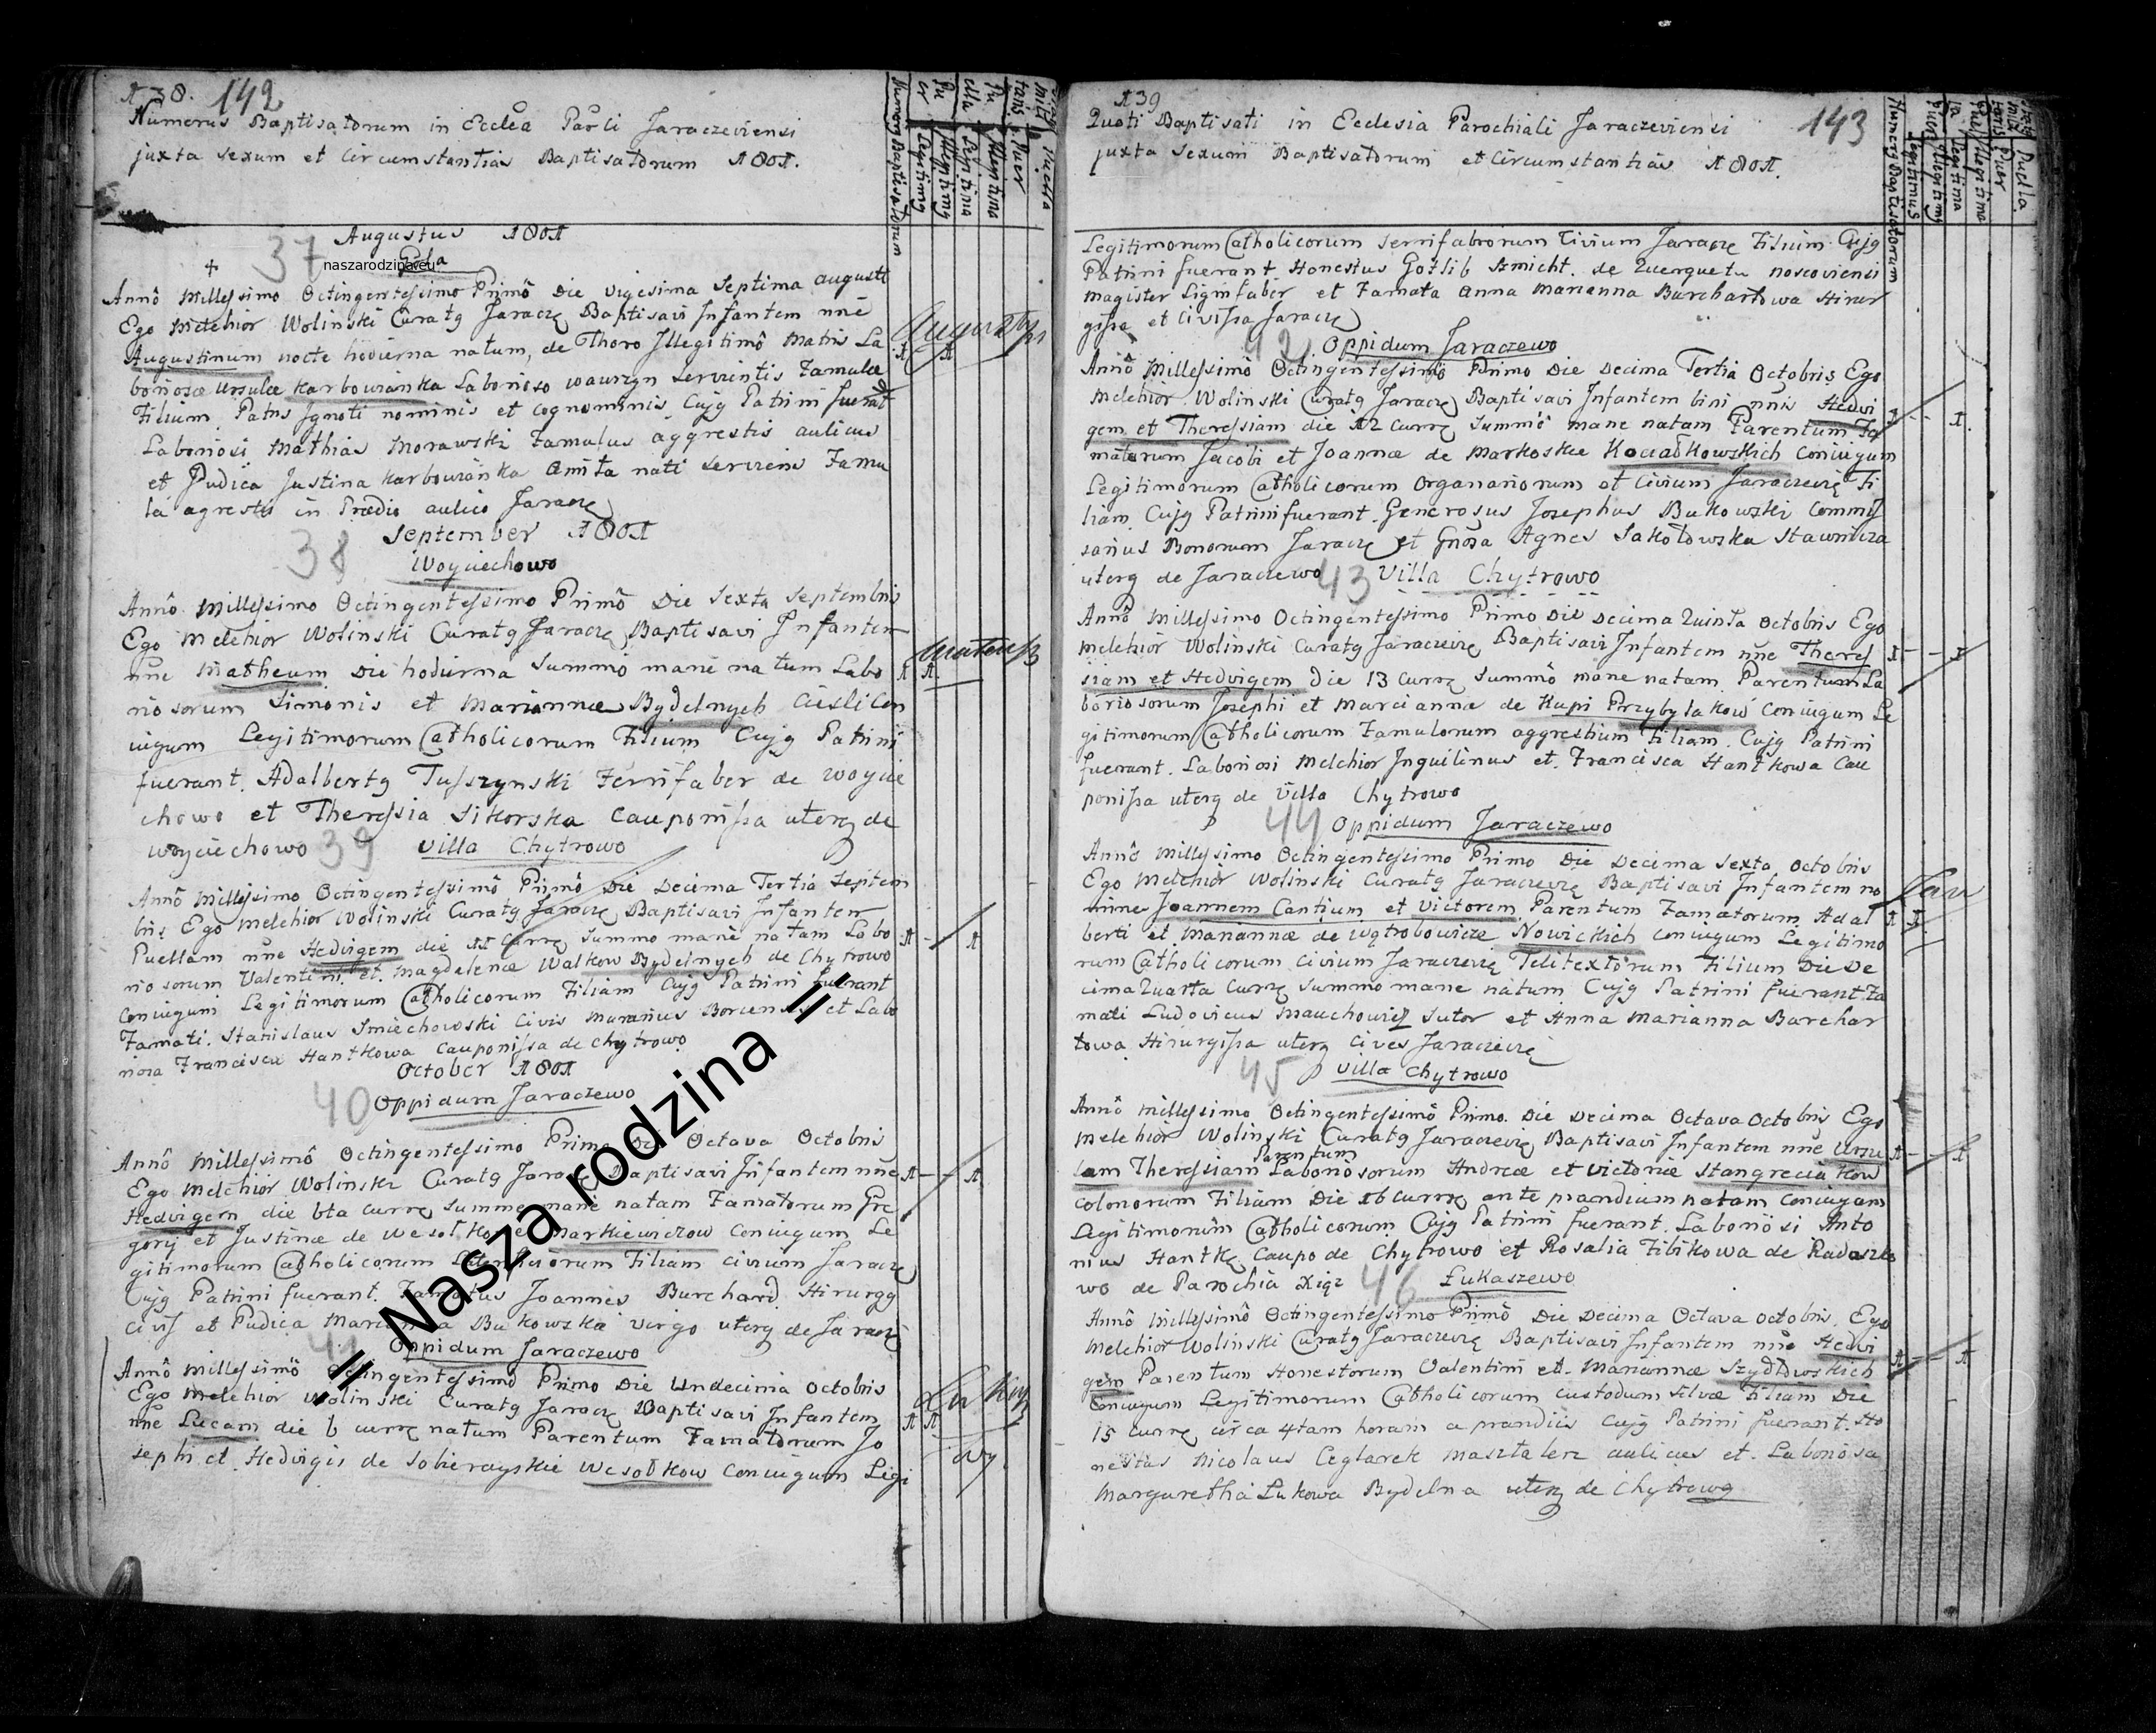 A 38. 142
Numerus Baptisatorum in Ecclea Paroli Jaraczeviensi
juxta sexum et circumstantias Baptisatorum 1801.
Augustus 1801
37
naszarodzina.eu
Anno Millessimo Octingentessimo Primo Die vigesima Septima augusti
Ego Melchior Wolinski Curatg Jaracz Baptisavi Infantem nne
Augustinum nocte hodierna natum, de Thoro Illegitimo Matris La
boriosæ Ursulæ Karbowianka Laborioso wawrzyn servientis Famulæ
Filium Patris Ignoti nominis et cognominis Cujg Patrini fuerant
Laboriosi Mathias Morawski Famulus aggrestis aulicus
et Pudica Justina Karbowianka Amita nati serviens Famu
la agrestis in Prædio aulico Jaracz
September 1801
38 Woyciechowo
Anno Millessimo Octingentessimo Primo Die Sexta Septembris
Ego Melchior Wolinski Curatg Jaracz Baptisavi Infantem
nne Matheum Die hodierna Summo mane natum Labo
riosorum Simonis et Mariannæ Bydelnych cieslicon
iugum Legitimorum Catholicorum Filium Cujg Patrini
fuerant. Adalbertg Tuszynski Ferrifaber de woycie
chowo et Theressia Sikorska Cauponissa uterq de
woyciechowo 39 villa Chytrowo
Anno Millessimo Octingentessimo Primo Die Decima Tertia Septem
bris Ego Melchior Wolinski Curatg Jaracz Baptisavi Infantem
Puellam nne Hedvigem die 11 Curre Summo mane natam Labo
riosorum Valentini et Magdalenæ Walkow Bydelnych de Chytrowo
Coniugum Legitimorum Catholicorum Filiam Cujg Patrini fuerant
Famati. Stanislaus Smiechowski Civis Murarius Borcensis et Labo
riosa Francisca Hantkowa Cauponissa de chytrowo
October 1801
40 Oppidum Jaraczewo
Anno Millessimo Octingentessimo Primo Die Octava Octobris
Ego Melchior Wolinski Curatg Jaracz Baptisavi Infantem nne
Hedvigem die 6ta Curre Summe mane natam Famatorum Gre
gorij et Justinæ de Markiewiczow Coniugum Le
gitimorum Catholicorum Filiam Civium Jaracz
Cujg Patrini fuerant. Famatus Joannes Burchard Hirurgg
Civis et Pudica Marianna Bukowska virgo uterq de Jaracz
Oppidum Jaraczewo
Anno Millessimo Octingentessimo Primo Die Undecima Octobris
Ego Melchior Wolinski Curatg Jaracz Baptisavi Infantem
nne Lucam die 6 curre natum Parentum Famatorum Jo
sephi et Hedvigis de Sobierayskie Wesołkow Coniugum Legi
= Nasza rodzina =
A39 143
Quoti Baptisati in Ecclesia Parochiali Jaraczeviensi
juxta Sexum Baptisatorum et Circumstantias 1801.
Legitimorum Catholicorum Serrifabrorum Civium Jaracze Filium Cujg
Patrini fuerant Honestus Gotlib Szmicht. de Querquetu noscoviensi
Magister Lignifaber et Famata Anna Marianna Burchartowa Hirur
gissa et Civissa Jaracz
42 Oppidum Jaraczewo
Anno Millessimo Octingentessimo Primo Die Decima Tertia Octobris Ego
Melchior Wolinski Curatg Jaracz Baptisavi Infantem bini nnis Hedvi
gem et Theressiam die 12 curre Summo mane natam Parentum Fa
matorum Jacobi et Joannæ de Markoskie Kociałkowskich Coniugum
Legitimorum Catholicorum Organariorum et Civium Jaraczevie Fi
liam. Cujg Patrini fuerant. Generosus Josephus Bukowski Commis
sarius Bonorum Jaracz et Gnosa Agnes Sakołowska Stawnicza
uterq de Jaraczewo 43 Villa Chytrowo
Anno Millessimo Octingentessimo Primo Die Decima Quinta Octobris Ego
Melchior Wolinski Curatg Jaraczevie Baptisavi Infantem nne Theres
siam et Hedvigem Die 13 Curre Summo mane natam Parentum La
boriosorum Josephi et Marcianna de Kupi Przybylakow Coniugum Le
gitimorum Catholicorum Famulorum aggrestium Filiam. Cujg Patrini
fuerant. Laboriosi Melchior Inquilinus et Francisca Hantkowa Cau
ponissa uterq de Villa Chytrowo
44 Oppidum Jaraczewo
Anno Millessimo Octingentessimo Primo Die Decima Sexta Octobris
Ego Melchior Wolinski Curatg Jaraczevie Baptisavi Infantem no
mine Joannem Cantium et Victorem Parentum Famatorum Adal
berti et Mariannæ de Wątrobowicze Nowickich Coniugum Legitimo
rum Catholicorum Civium Jaraczevie Telitextorum Filium Die De
cima Quarta Curre Summo mane natum Cujg Patrini fuerant. Fa
mati Ludovicus Mauchowicz Sutor et Anna Marianna Barchar
towa Hirurgissa uterq Cives Jaraczevie
45 villa Chytrowo
Anno Millessimo Octingentessimo Primo. Die Decima Octava Octobris Ego
Melchior Wolinski Curatg Jaraczevie Baptisavi Infantem nne Ursu
lam Theressiam Parentum Laboriosorum Andreæ et victoriæ Stangreciakow
Colonorum Filiam Die 16 curre ante prandium natam Coniugum
Legitimorum Catholicorum Cujg Patrini fuerant. Laboriosi Anto
nius Hantke Caupo de Chytrowo et Rosalia Filikowa de Radoszko
wo de Parochia Xiąz 46 Łukaszewo
Anno Millessimo Octingentessimo Primo Die Decima Octava Octobris. Ego
Melchior Wolinski Curatg Jaraczevie Baptisavi Infantem nne Hedvi
gem Parentum Honestorum Valentini et Mariannæ Szydłowskich
Coniugum Legitimorum Catholicorum custodum Silvæ Filiam Die
15 Curre circa 4tam horam a prandiis Cujg Patrini fuerant. Ho
nestus Nicolaus Ceglarek Masztalerz aulicus et Laboriosa
Margaretha Lukowa Bydelna uterq de Chytrowo